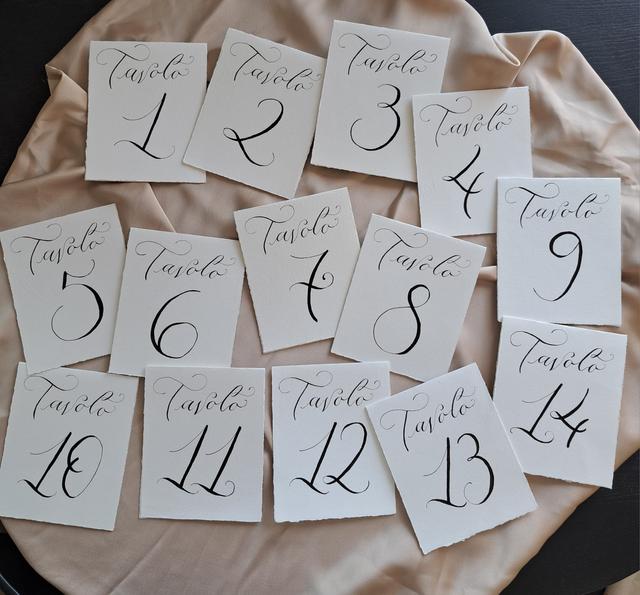 Tavolo
1
Tavolo
2
Tavolo
3
Tavolo
4
Tavolo
5
Tavolo
6
Tavolo
7
Tavolo
8
Tavolo
9
Tavolo
10
Tavolo
11
Tavolo
12
Tavolo
13
Tavolo
14